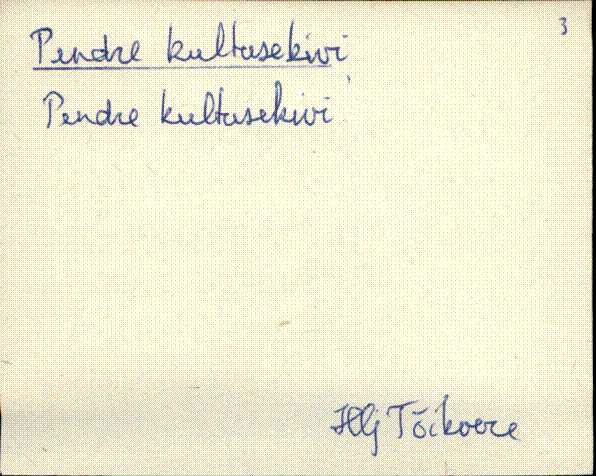 3
Pendre kultusekivi
Pendre kultusekivi
Hlj Tõikvere